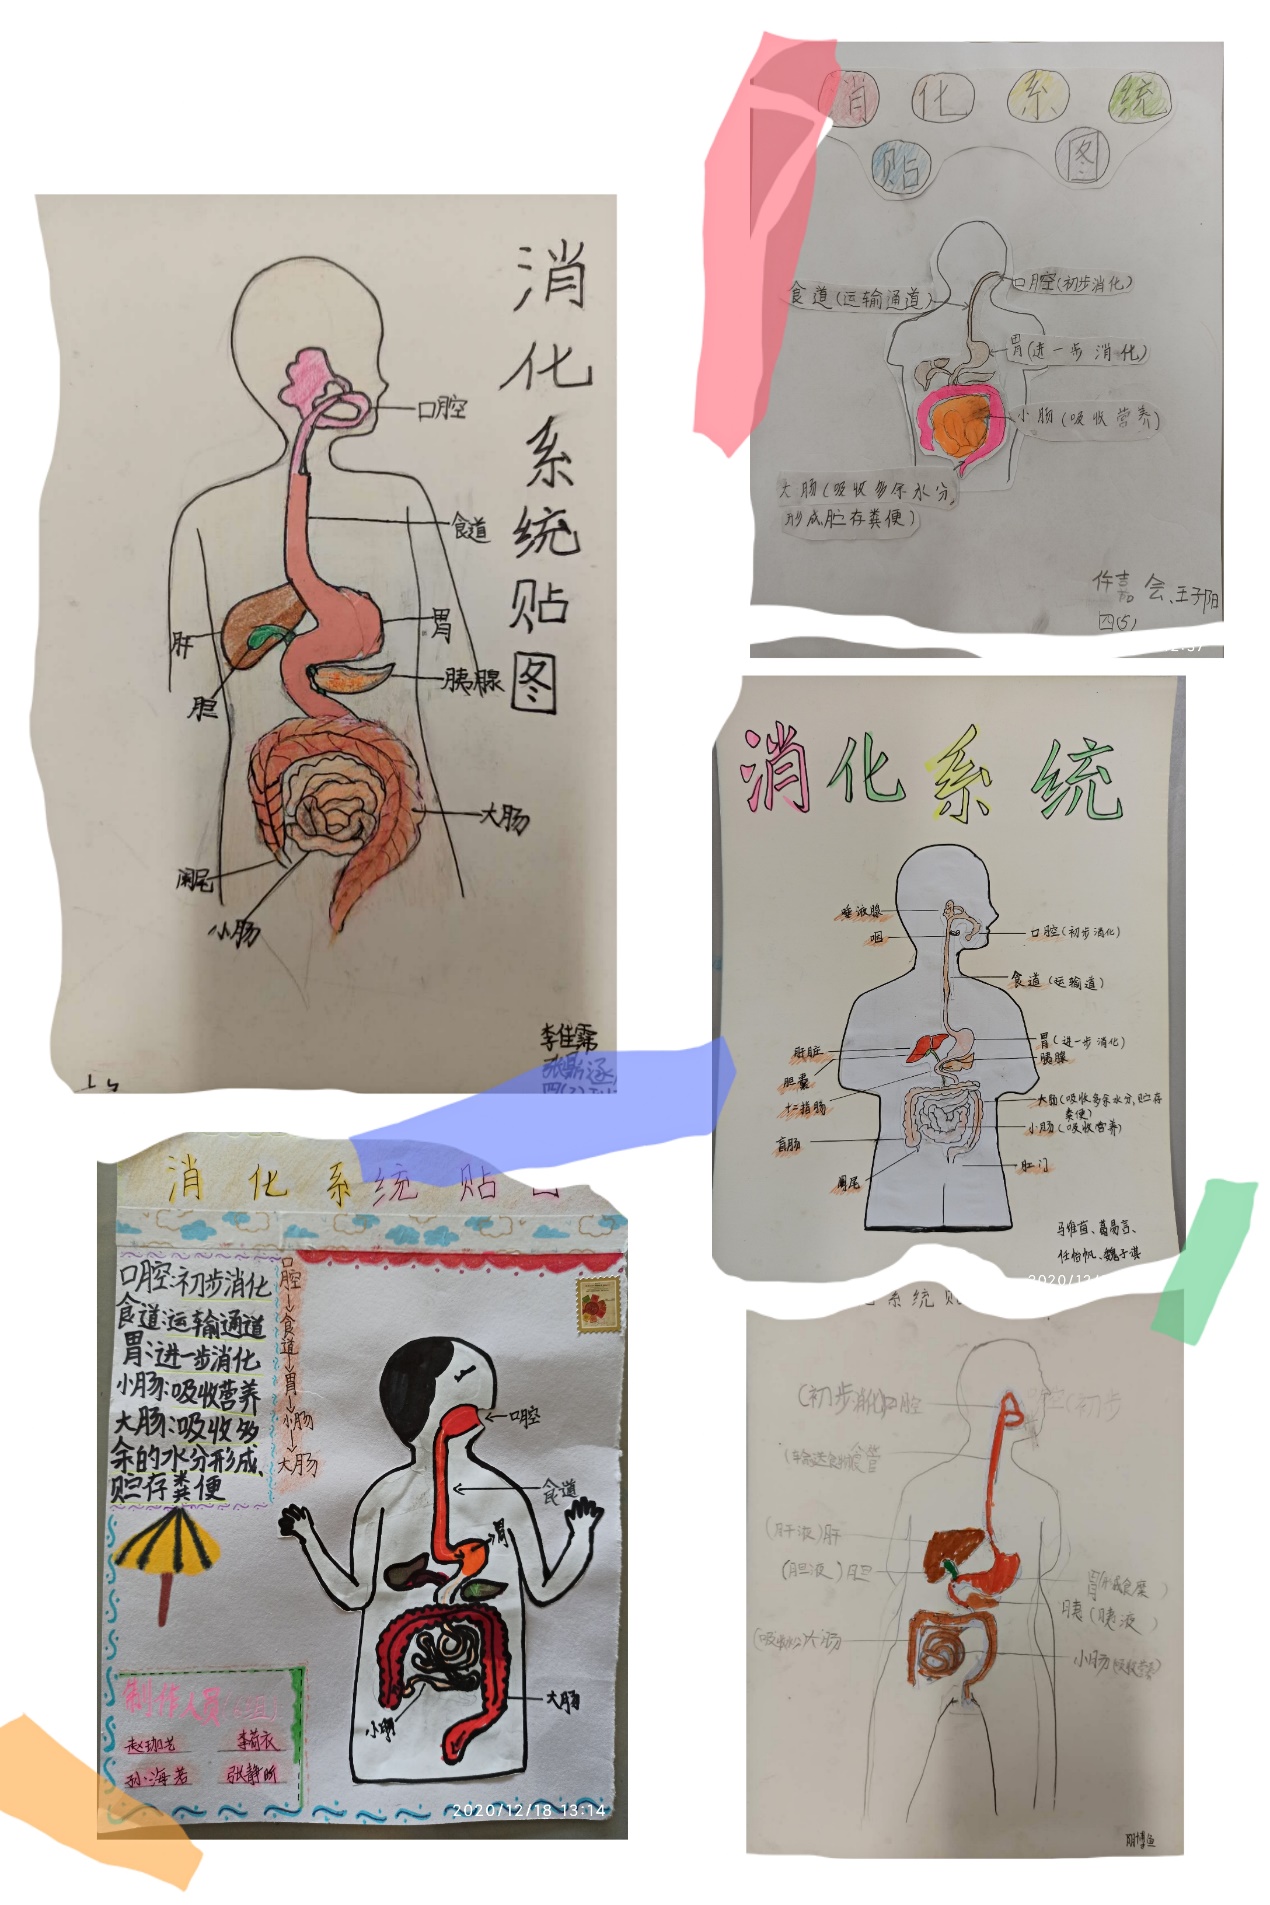 消
化
系
统
贴
图
口腔
食道
肝
胃
胆
胰腺
大肠
阑尾
小肠
李佳霈
消 化 系 统
贴 图
食道(运输通道)
口腔(初步消化)
胃(进一步消化)
小肠(吸收营养)
大肠(吸收多余水分,
形成贮存粪便)
会、王子阳
四(5)
消化系统
唾液腺
咽
口腔(初步消化)
食道(运输道)
肝脏
胃(进一步消化)
胰腺
胆囊
十二指肠
大肠(吸收多余水分,贮存
粪便)
小肠(吸收营养)
盲肠
肛门
阑尾
2020/12/
消化系统贴
口腔:初步消化
食道:运输通道
胃:进一步消化
小肠:吸收营养
大肠:吸收多
余的水分形成、
贮存粪便
口腔→食道→胃→小肠→大肠
口腔
食道
胃
大肠
小肠
制作人员
孙海若
张静昕
2020/12/18 13:14
系统贴
(初步消化)口腔
(初步
食管
(肝液)肝
(胆液)胆
胃
胰(胰液)
大肠
小肠(吸收营养)